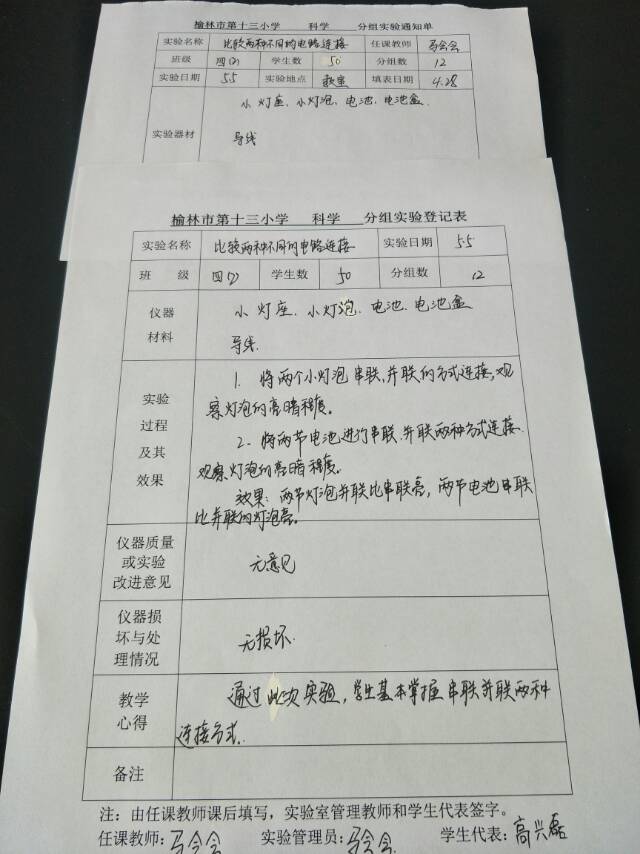 榆林市第十三小学 科学 分组实验通知单
实验名称 比较两种不同的电路连接 任课教师 马会会
班级 四(2) 学生数 50 分组数 12
实验日期 5.5 实验地点 教室 填表日期 4.28
实验器材 小灯座、小灯泡、电池、电池盒、
导线
榆林市第十三小学 科学 分组实验登记表
实验名称 比较两种不同的电路连接 实验日期 5.5
班 级 四(2) 学生数 50 分组数 12
仪器 小灯座、小灯泡、电池、电池盒
材料 导线.
实验
过程
及其
效果
1. 将两个小灯泡串联,并联的方式连接,观
察灯泡的亮暗程度。
2. 将两节电池进行串联.并联两种方式连接.
观察灯泡的亮暗程度。
效果:两节灯泡并联比串联亮,两节电池串联
比并联的灯泡亮。
仪器质量
或实验
改进意见
无意见
仪器损
坏与处
理情况
无损坏.
教学
心得
通过此次实验,学生基本掌握串联并联两种
连接方式.
备注
注:由任课教师课后填写,实验室管理教师和学生代表签字。
任课教师:马会会 实验管理员:马会会 学生代表:高兴磊